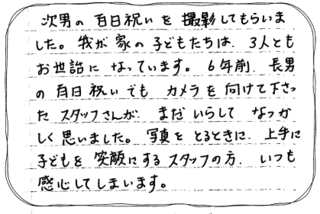 次男の百日祝いを撮影してもらいま
した。我が家の子どもたちは、3人とも
お世話になっています。6年前、長男
の百日祝いでもカメラを向けて下さっ
たスタッフさんが、まだいらしてなつか
しく思いました。写真をとるときに、上手に
子どもを笑顔にするスタッフの方、いつも
感心してしまいます。